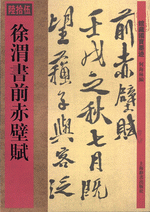 陸拾伍
徐渭書前赤壁賦
前赤壁賦
壬戌之秋七月
望蘇子與客泛